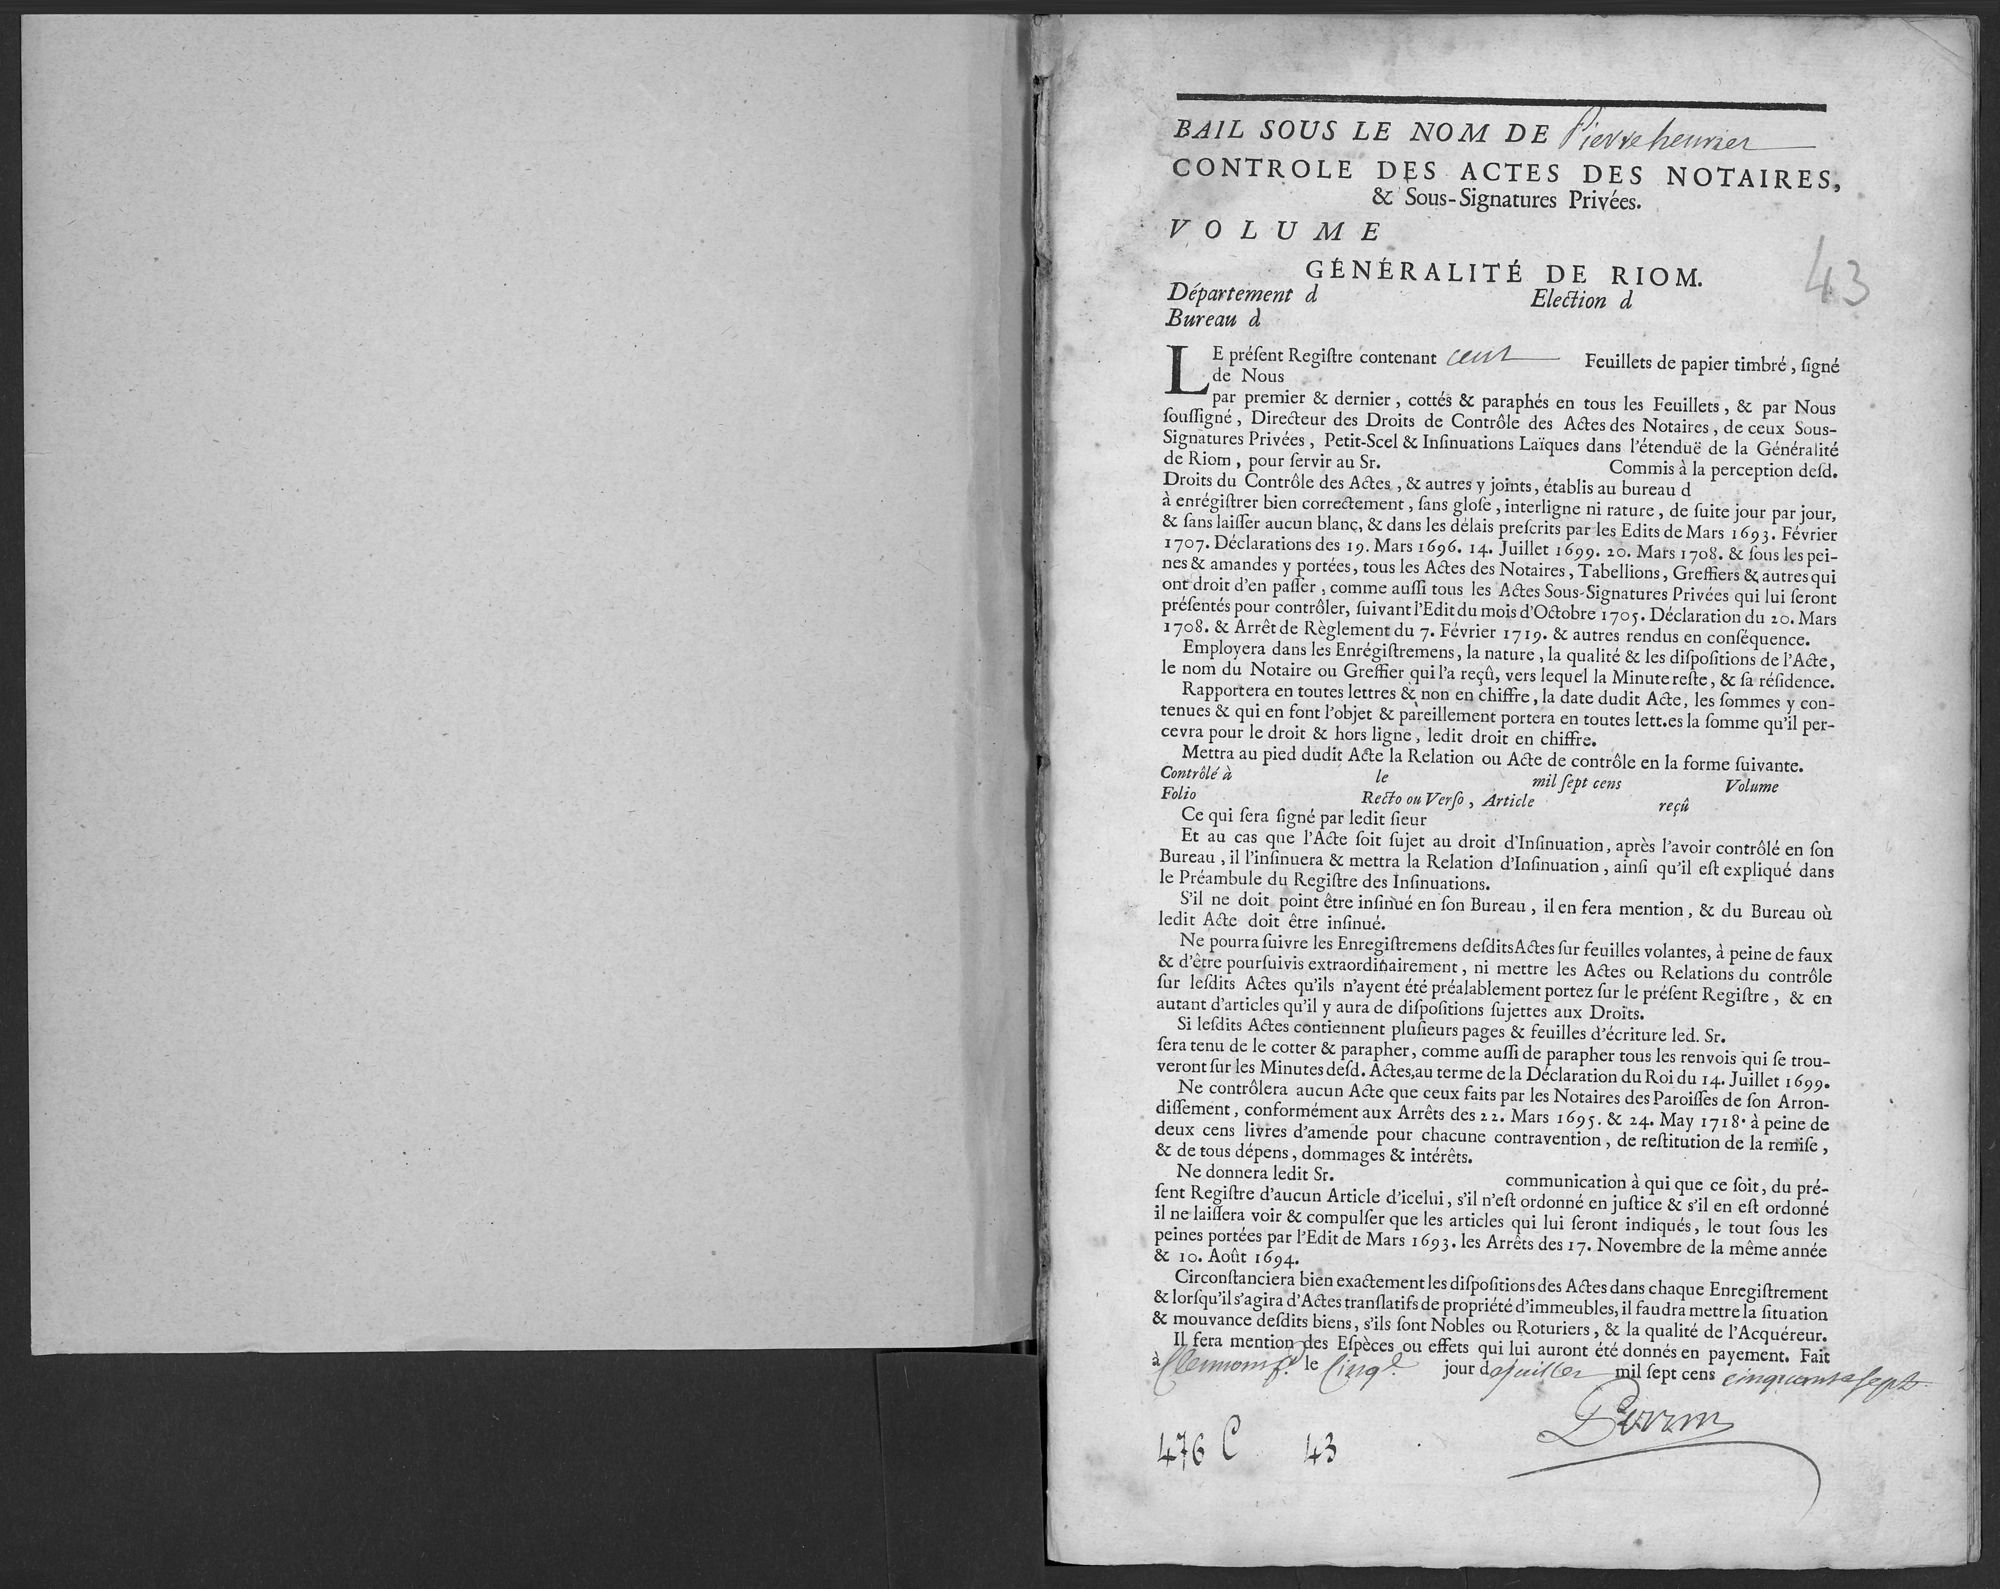 BAIL SOUS LE NOM DE Pierre henriet
CONTROLE DES ACTES DES NOTAIRES,
& Sous-Signatures Privées.
VOLUME
43
GÉNÉRALITÉ DE RIOM.
Département d Election d
Bureau d
LE préſent Regiſtre contenant cent Feuillets de papier timbré, ſigné
de Nous
par premier & dernier, cottés & paraphés en tous les Feuillets, & par Nous
ſouſſigné, Directeur des Droits de Contrôle des Actes des Notaires, de ceux Sous-
Signatures Privées, Petit-Scel & Inſinuations Laïques dans l'étenduë de la Généralité
de Riom, pour ſervir au Sr. Commis à la perception deſd.
Droits du Contrôle des Actes, & autres y joints, établis au bureau d
à enrégiſtrer bien correctement, ſans gloſe, interligne ni rature, de ſuite jour par jour,
& ſans laiſſer aucun blanc, & dans les délais preſcrits par les Edits de Mars 1693. Février
1707. Déclarations des 19. Mars 1696. 14. Juillet 1699. 20. Mars 1708. & ſous les pei-
nes & amandes y portées, tous les Actes des Notaires, Tabellions, Greffiers & autres qui
ont droit d'en paſſer, comme auſſi tous les Actes Sous-Signatures Privées qui lui ſeront
préſentés pour contrôler, ſuivant l'Edit du mois d'Octobre 1705. Déclaration du 20. Mars
1708. & Arrêt de Règlement du 7. Février 1719. & autres rendus en conſéquence.
Employera dans les Enrégiſtremens, la nature, la qualité & les diſpoſitions de l'Acte,
le nom du Notaire ou Greffier qui l'a reçû, vers lequel la Minute reſte, & ſa réſidence.
Rapportera en toutes lettres & non en chiffre, la date dudit Acte, les ſommes y con-
tenues & qui en font l'objet & pareillement portera en toutes lett.es la ſomme qu'il per-
cevra pour le droit & hors ligne, ledit droit en chiffre.
Mettra au pied dudit Acte la Relation ou Acte de contrôle en la forme ſuivante.
Contrôlé à le mil ſept cens Volume
Folio Recto ou Verſo, Article reçû
Ce qui ſera ſigné par ledit ſieur
Et au cas que l'Acte ſoit ſujet au droit d'Inſinuation, après l'avoir contrôlé en ſon
Bureau, il l'inſinuera & mettra la Relation d'Inſinuation, ainſi qu'il eſt expliqué dans
le Préambule du Regiſtre des Inſinuations.
S'il ne doit point être inſinué en ſon Bureau, il en fera mention, & du Bureau où
ledit Acte doit être inſinué.
Ne pourra ſuivre les Enregiſtremens deſdits Actes ſur feuilles volantes, à peine de faux
& d'être pourſuivis extraordinairement, ni mettre les Actes ou Relations du contrôle
ſur leſdits Actes qu'ils n'ayent été préalablement portez ſur le préſent Regiſtre, & en
autant d'articles qu'il y aura de diſpoſitions ſujettes aux Droits.
Si leſdits Actes contiennent pluſieurs pages & feuilles d'écriture led. Sr.
ſera tenu de le cotter & parapher, comme auſſi de parapher tous les renvois qui ſe trou-
veront ſur les Minutes deſd. Actes, au terme de la Déclaration du Roi du 14. Juillet 1699.
Ne contrôlera aucun Acte que ceux faits par les Notaires des Paroiſſes de ſon Arron-
diſſement, conformément aux Arrêts des 22. Mars 1695. & 24. May 1718. à peine de
deux cens livres d'amende pour chacune contravention, de reſtitution de la remiſe,
& de tous dépens, dommages & intérêts.
Ne donnera ledit Sr. communication à qui que ce ſoit, du pré-
ſent Regiſtre d'aucun Article d'icelui, s'il n'eſt ordonné en juſtice & s'il en eſt ordonné
il ne laiſſera voir & compulſer que les articles qui lui ſeront indiqués, le tout ſous les
peines portées par l'Edit de Mars 1693. les Arrêts des 17. Novembre de la même année
& 10. Août 1694.
Circonſtanciera bien exactement les diſpoſitions des Actes dans chaque Enregiſtrement
& lorſqu'il s'agira d'Actes tranſlatifs de propriété d'immeubles, il faudra mettre la ſituation
& mouvance deſdits biens, s'ils ſont Nobles ou Roturiers, & la qualité de l'Acquéreur.
Il fera mention des Eſpèces ou effets qui lui auront été donnés en payement. Fait
à Clermont fd le Cinq jour d juillet mil ſept cens cinquante sept
Perrin
476 C 43